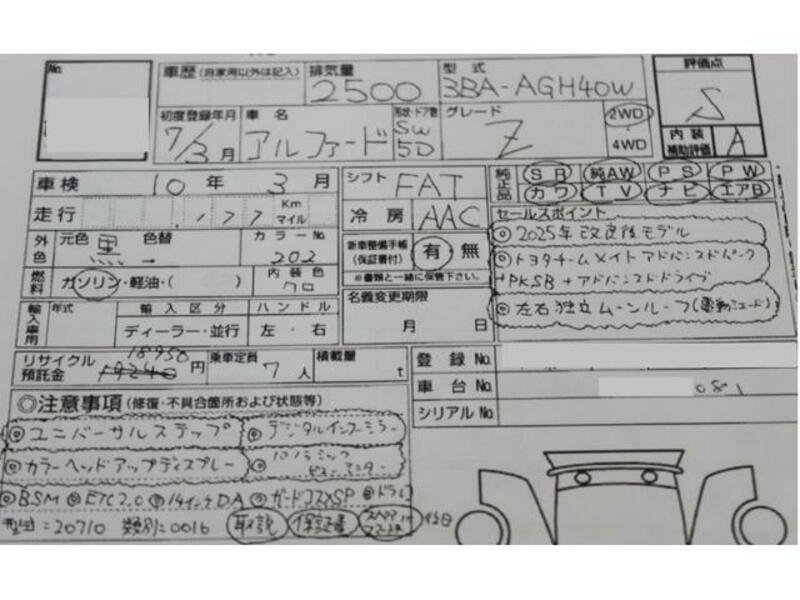 No.
車歴(自家用以外は記入) 排気量 2500 型式 3BA-AGH40W 評価点 S
初度登録年月 7/3月 車名 アルファード 形状・ドア数 SW 5D グレード Z 2WD 4WD 内装補助評価 A
車検 10年 3月 シフト FAT 純正品 SR 純AW PS PW
カワ TV ナビ エアB
走行 177 Km マイル 冷房 AAC セールスポイント
外色 元色 黒 色替 カラーNo. 202 新車整備手帳(保証書付) 有・無 ※書類と一緒に保管下さい。
◎2025年改良後モデル
◎トヨタチームメイトアドバンスドパーク
+PKSB+アドバンスドドライブ
◎左右独立ムーンルーフ(電動シェード)
燃料 ガソリン・軽油・( ) 内装色 クロ
名義変更期限 月 日
輸入車用 年式 輸入区分 ハンドル
ディーラー・並行 左・右
リサイクル預託金 18950 円 乗車定員 7人 積載量 t
登録No.
車台No. 081
シリアルNo.
◎注意事項(修復・不具合箇所および状態等)
◎ユニバーサルステップ ◎デジタルインナーミラー
◎カラーヘッドアップディスプレー ◎パノラミックビューモニター
◎BSM ◎ETC2.0 ◎14インチDA ◎ガードコスメSP ◎ドラレコ
型式=20710 類別=0016 取説 保証書